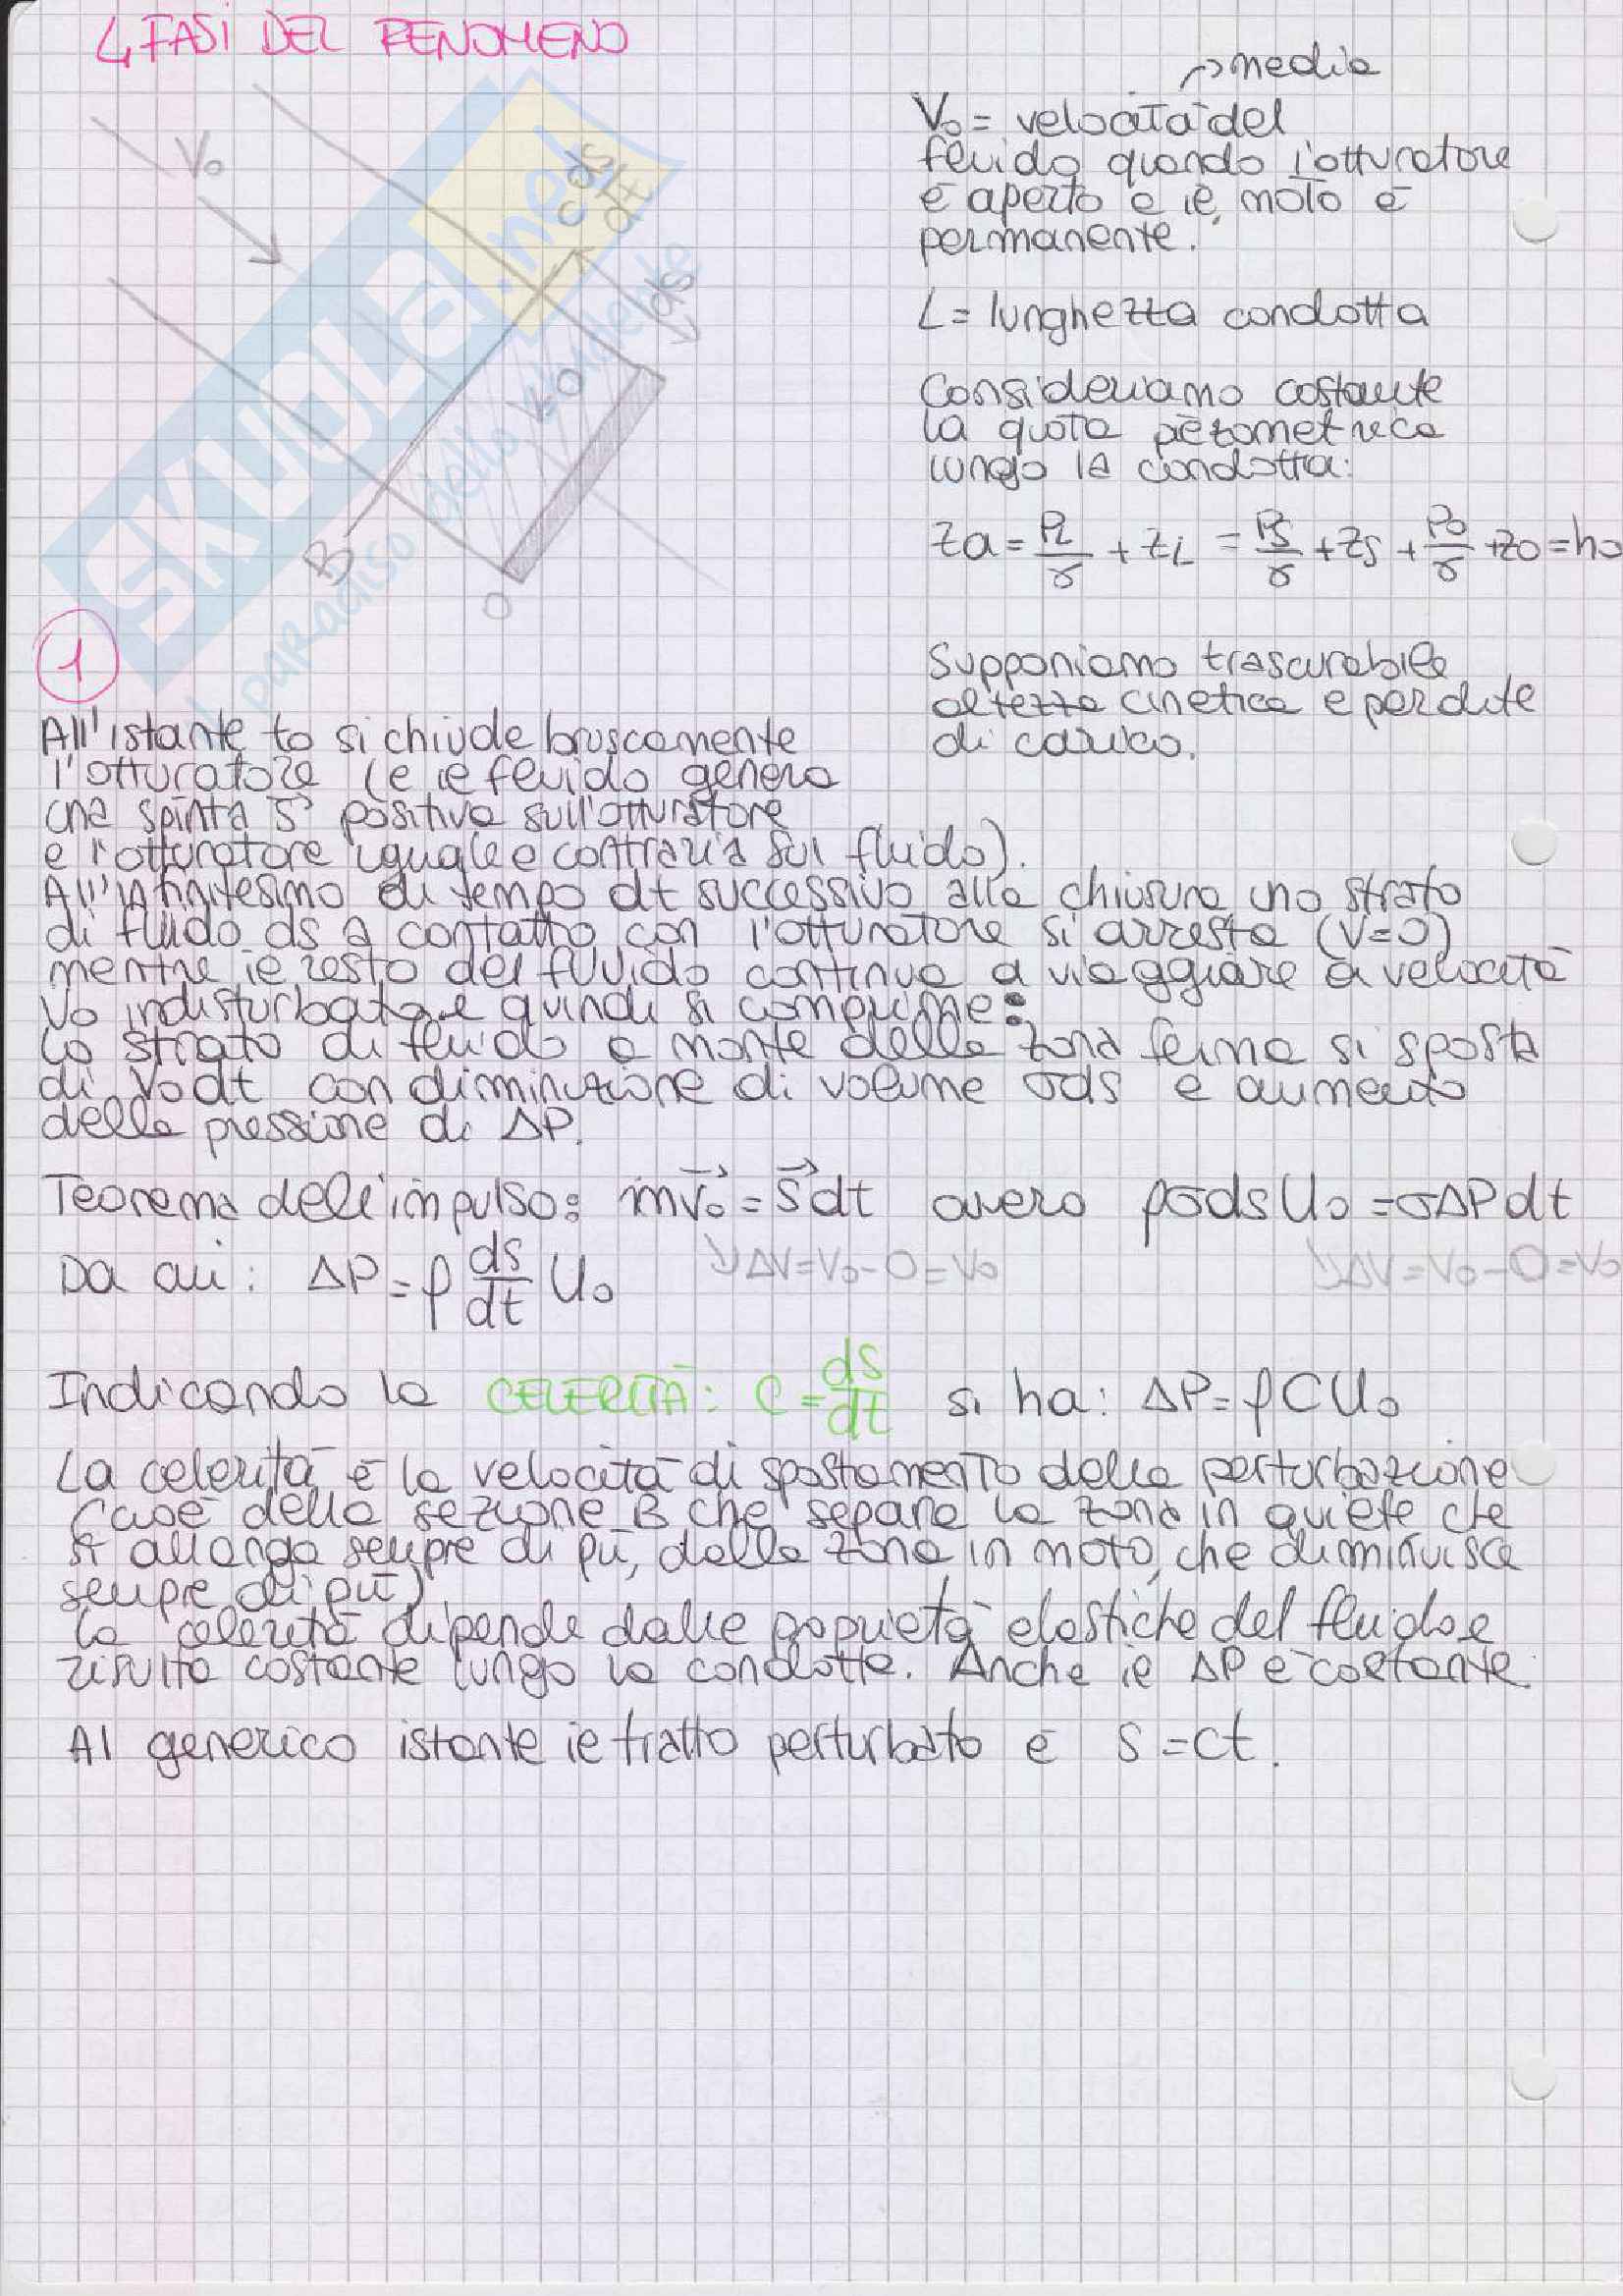 4 FASI DEL FENOMENO
V₀
c ds/dt
ds
V=0
B
O
SKUOLA.net
il paradiso dello studente
media
V₀ = velocità del
fluido quando l'otturatore
è aperto e il moto è
permanente.
L = lunghezza condotta
Consideriamo costante
la quota piezometrica
lungo la condotta:
za = PL/γ + zL = Ps/γ + zs + P0/γ + z0 = h0
Supponiamo trascurabile
altezza cinetica e perdite
di carico.
1
All'istante t0 si chiude bruscamente
l'otturatore (e il fluido genera
una spinta S positiva sull'otturatore
e l'otturatore uguale e contraria sul fluido).
All'infinitesimo di tempo dt successivo alla chiusura uno strato
di fluido ds a contatto con l'otturatore si arresta (V=0)
mentre il resto del fluido continua a viaggiare a velocità
V₀ indisturbata e quindi si comprime:
Lo strato di fluido a monte della zona ferma si sposta
di V₀dt con diminuzione di volume σds e aumento
della pressione di ΔP.
Teorema dell'impulso: m v⃗₀ = S⃗ dt ovvero ρσds U₀ = σΔP dt
↳ΔV=V₀-0=V₀ ↳ΔV=V₀-0=V₀
Da cui: ΔP = ρ ds/dt U₀
Indicando la CELERITÀ: C = ds/dt si ha: ΔP = ρCU₀
La celerità è la velocità di spostamento della perturbazione
(cioè della sezione B che separa la zona in quiete che
si allarga sempre di più, dalla zona in moto, che diminuisce
sempre di più)
La celerità dipende dalle proprietà elastiche del fluido e
risulta costante lungo la condotta. Anche il ΔP è costante.
Al generico istante il tratto perturbato è S = ct.